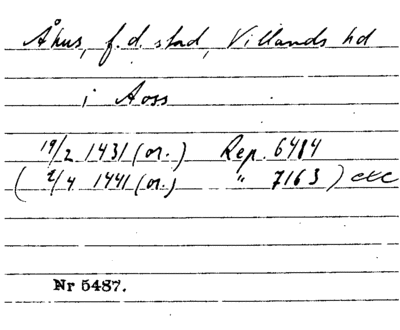 Åhus, f.d. stad, Villands hd
i Aoss
19/2 1431 (or.) Rep. 6484
( 2/4 1441 (or.) " 7163 ) etc
Nr 5487.